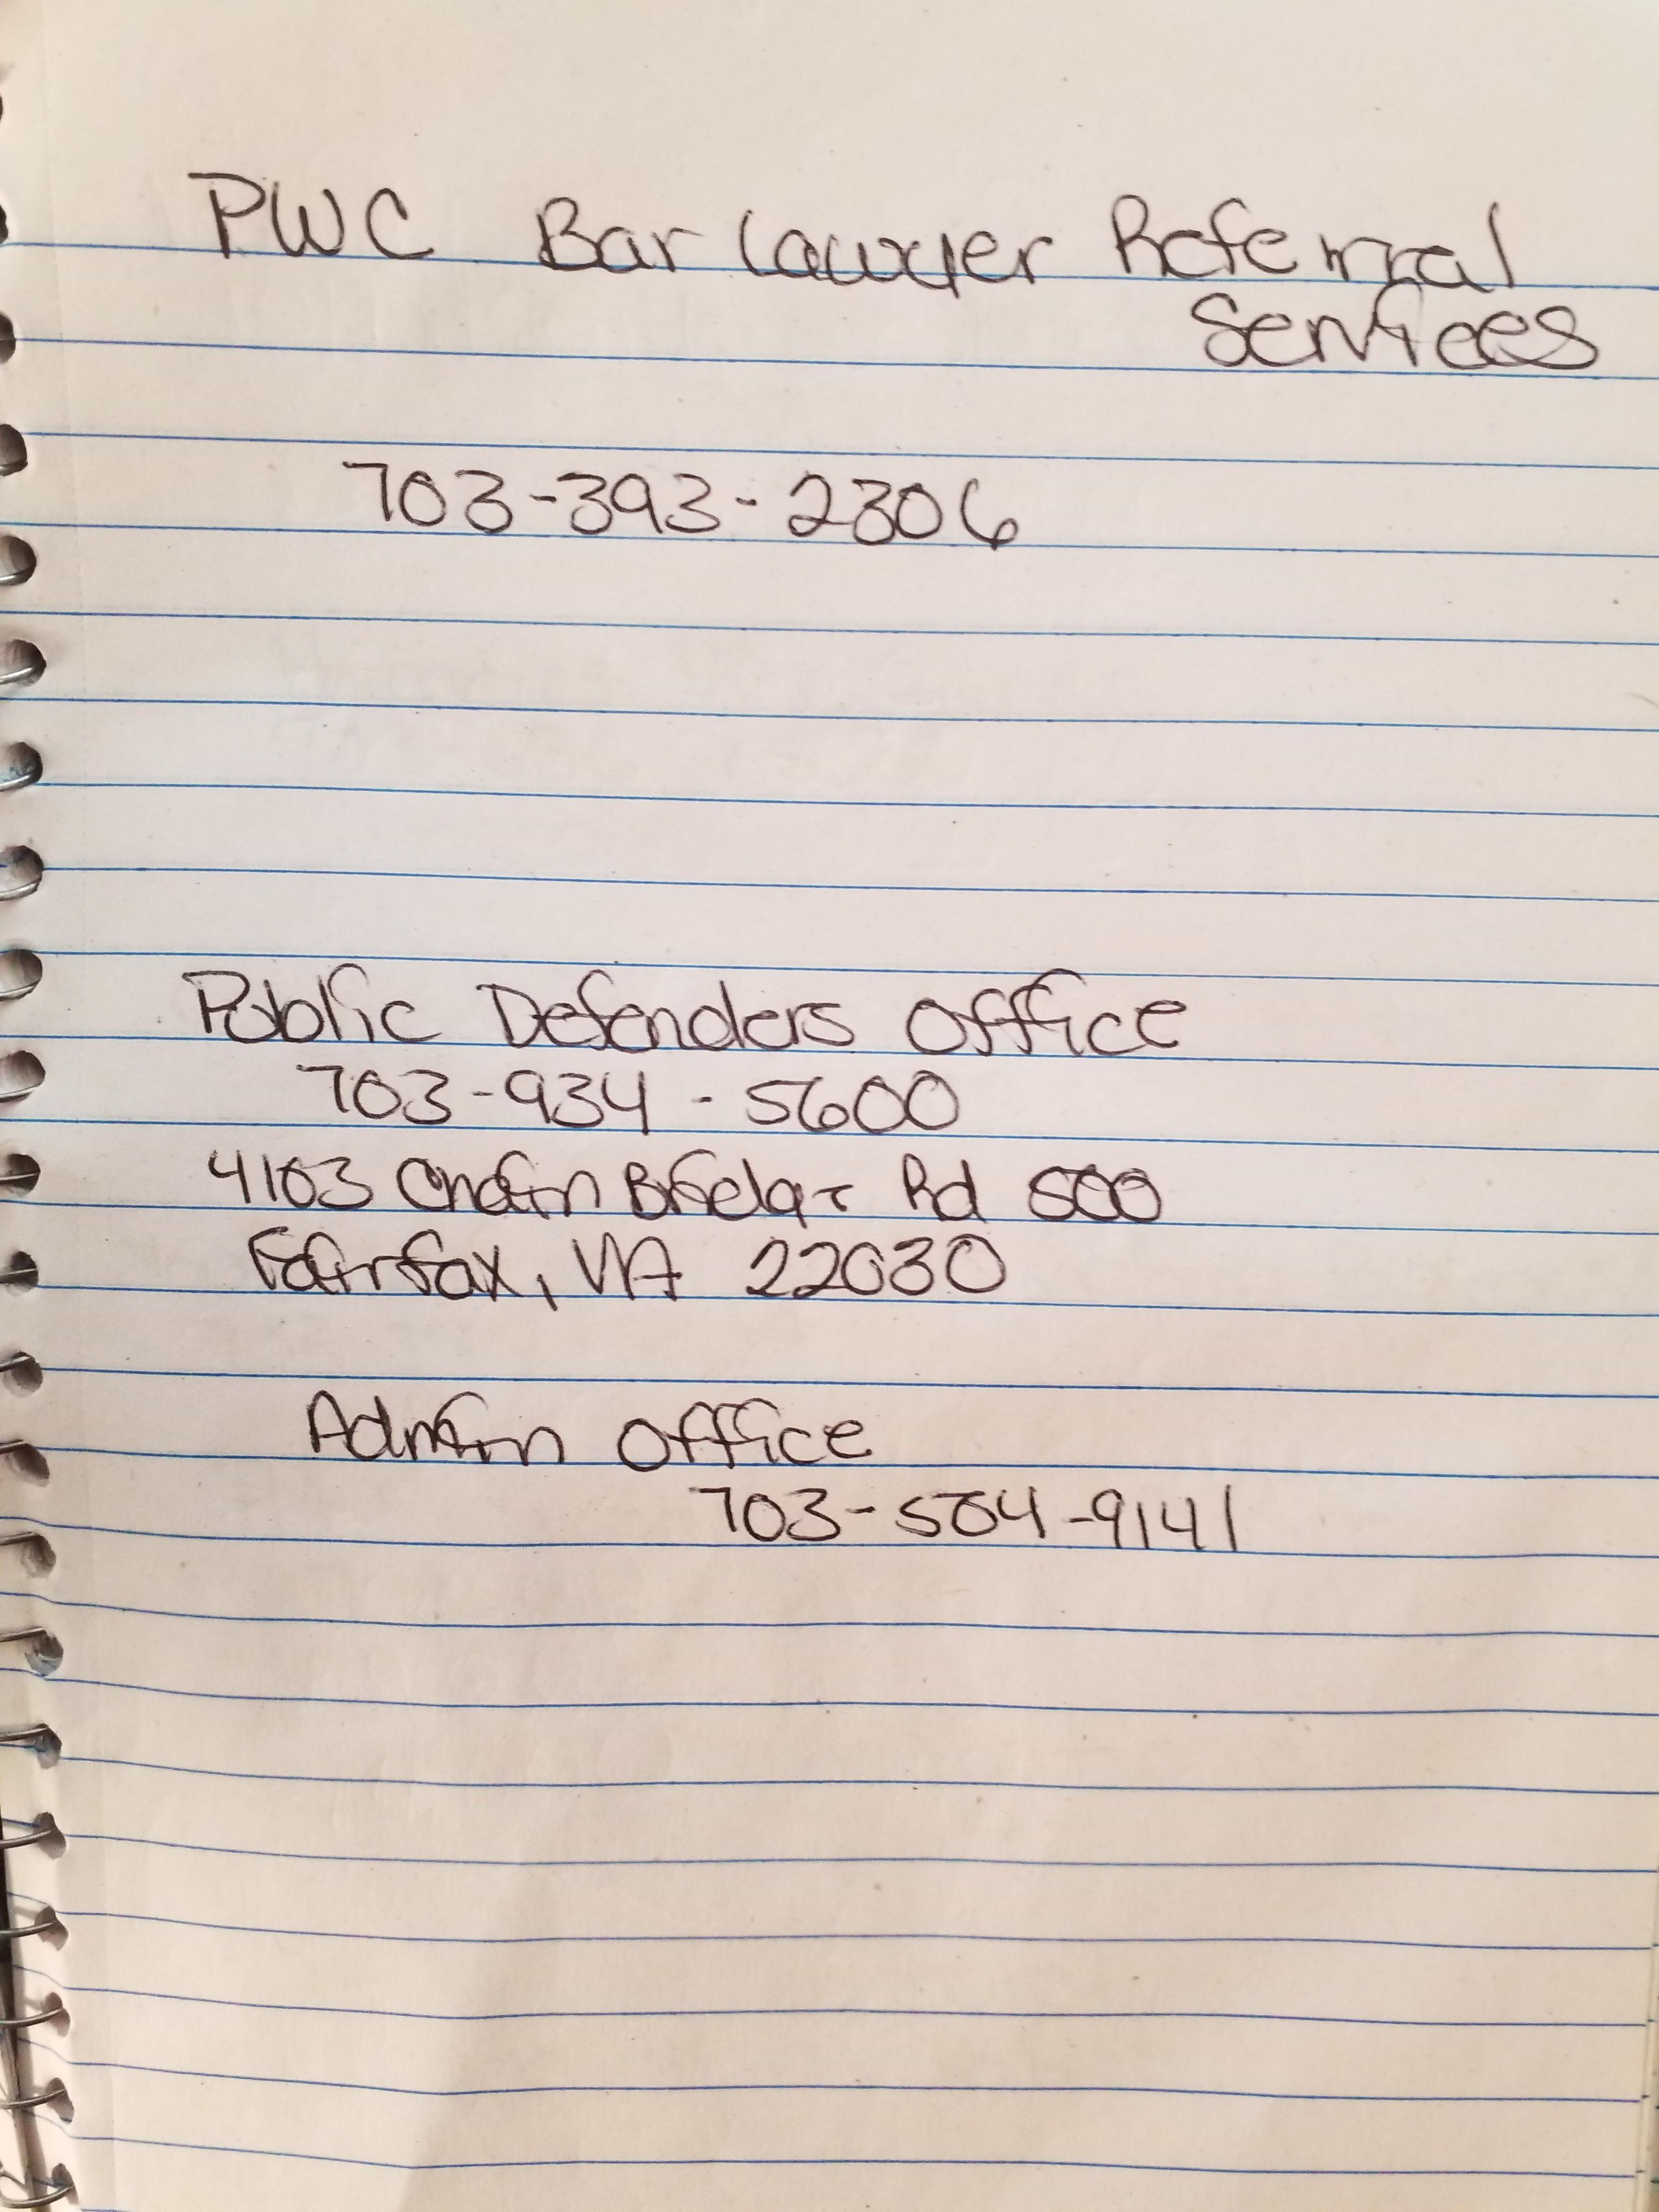 PWC Bar Lawyer Referral
Services
703-393-2306
Public Defenders Office
703-934-5600
4103 Chain Bridge Rd 500
Fairfax, VA 22030
Admin Office
703-504-9141